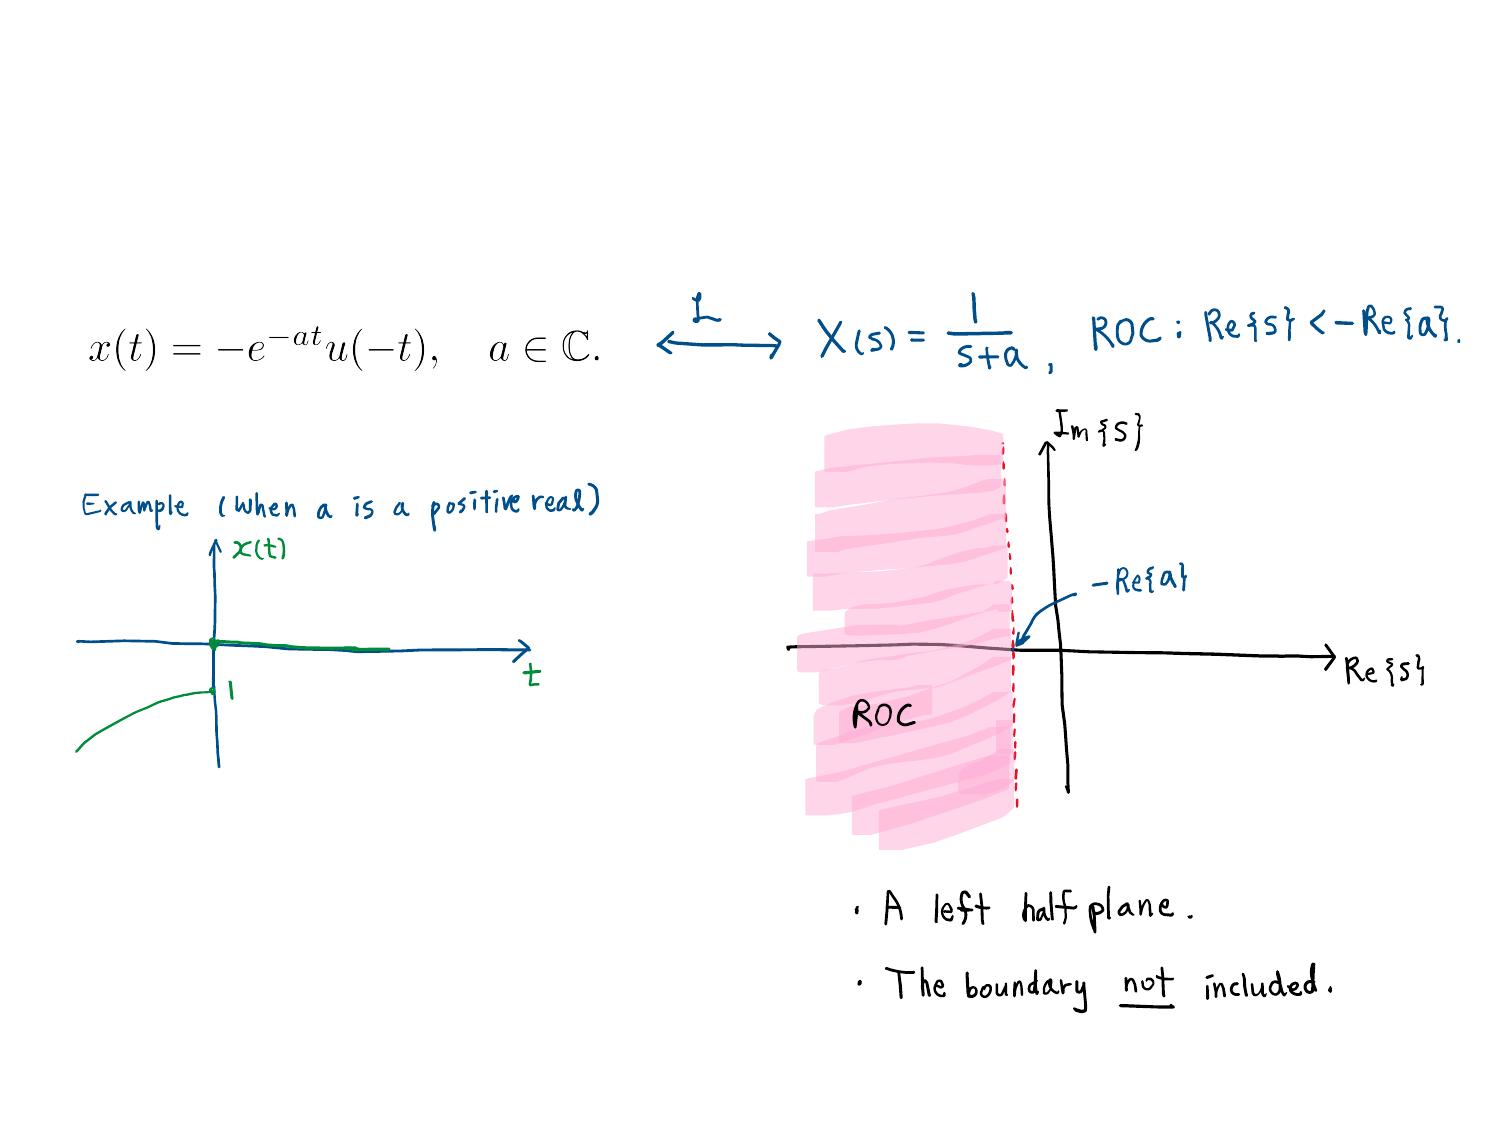 x(t) = −e^{−at}u(−t), a ∈ ℂ. ⟷ 𝓛 X(s) = 1/(s+a), ROC : Re{s} < −Re{a}.
Example (when a is a positive real)
x(t)
t
1
Im{s}
−Re{a}
Re{s}
ROC
· A left half plane.
· The boundary not included.